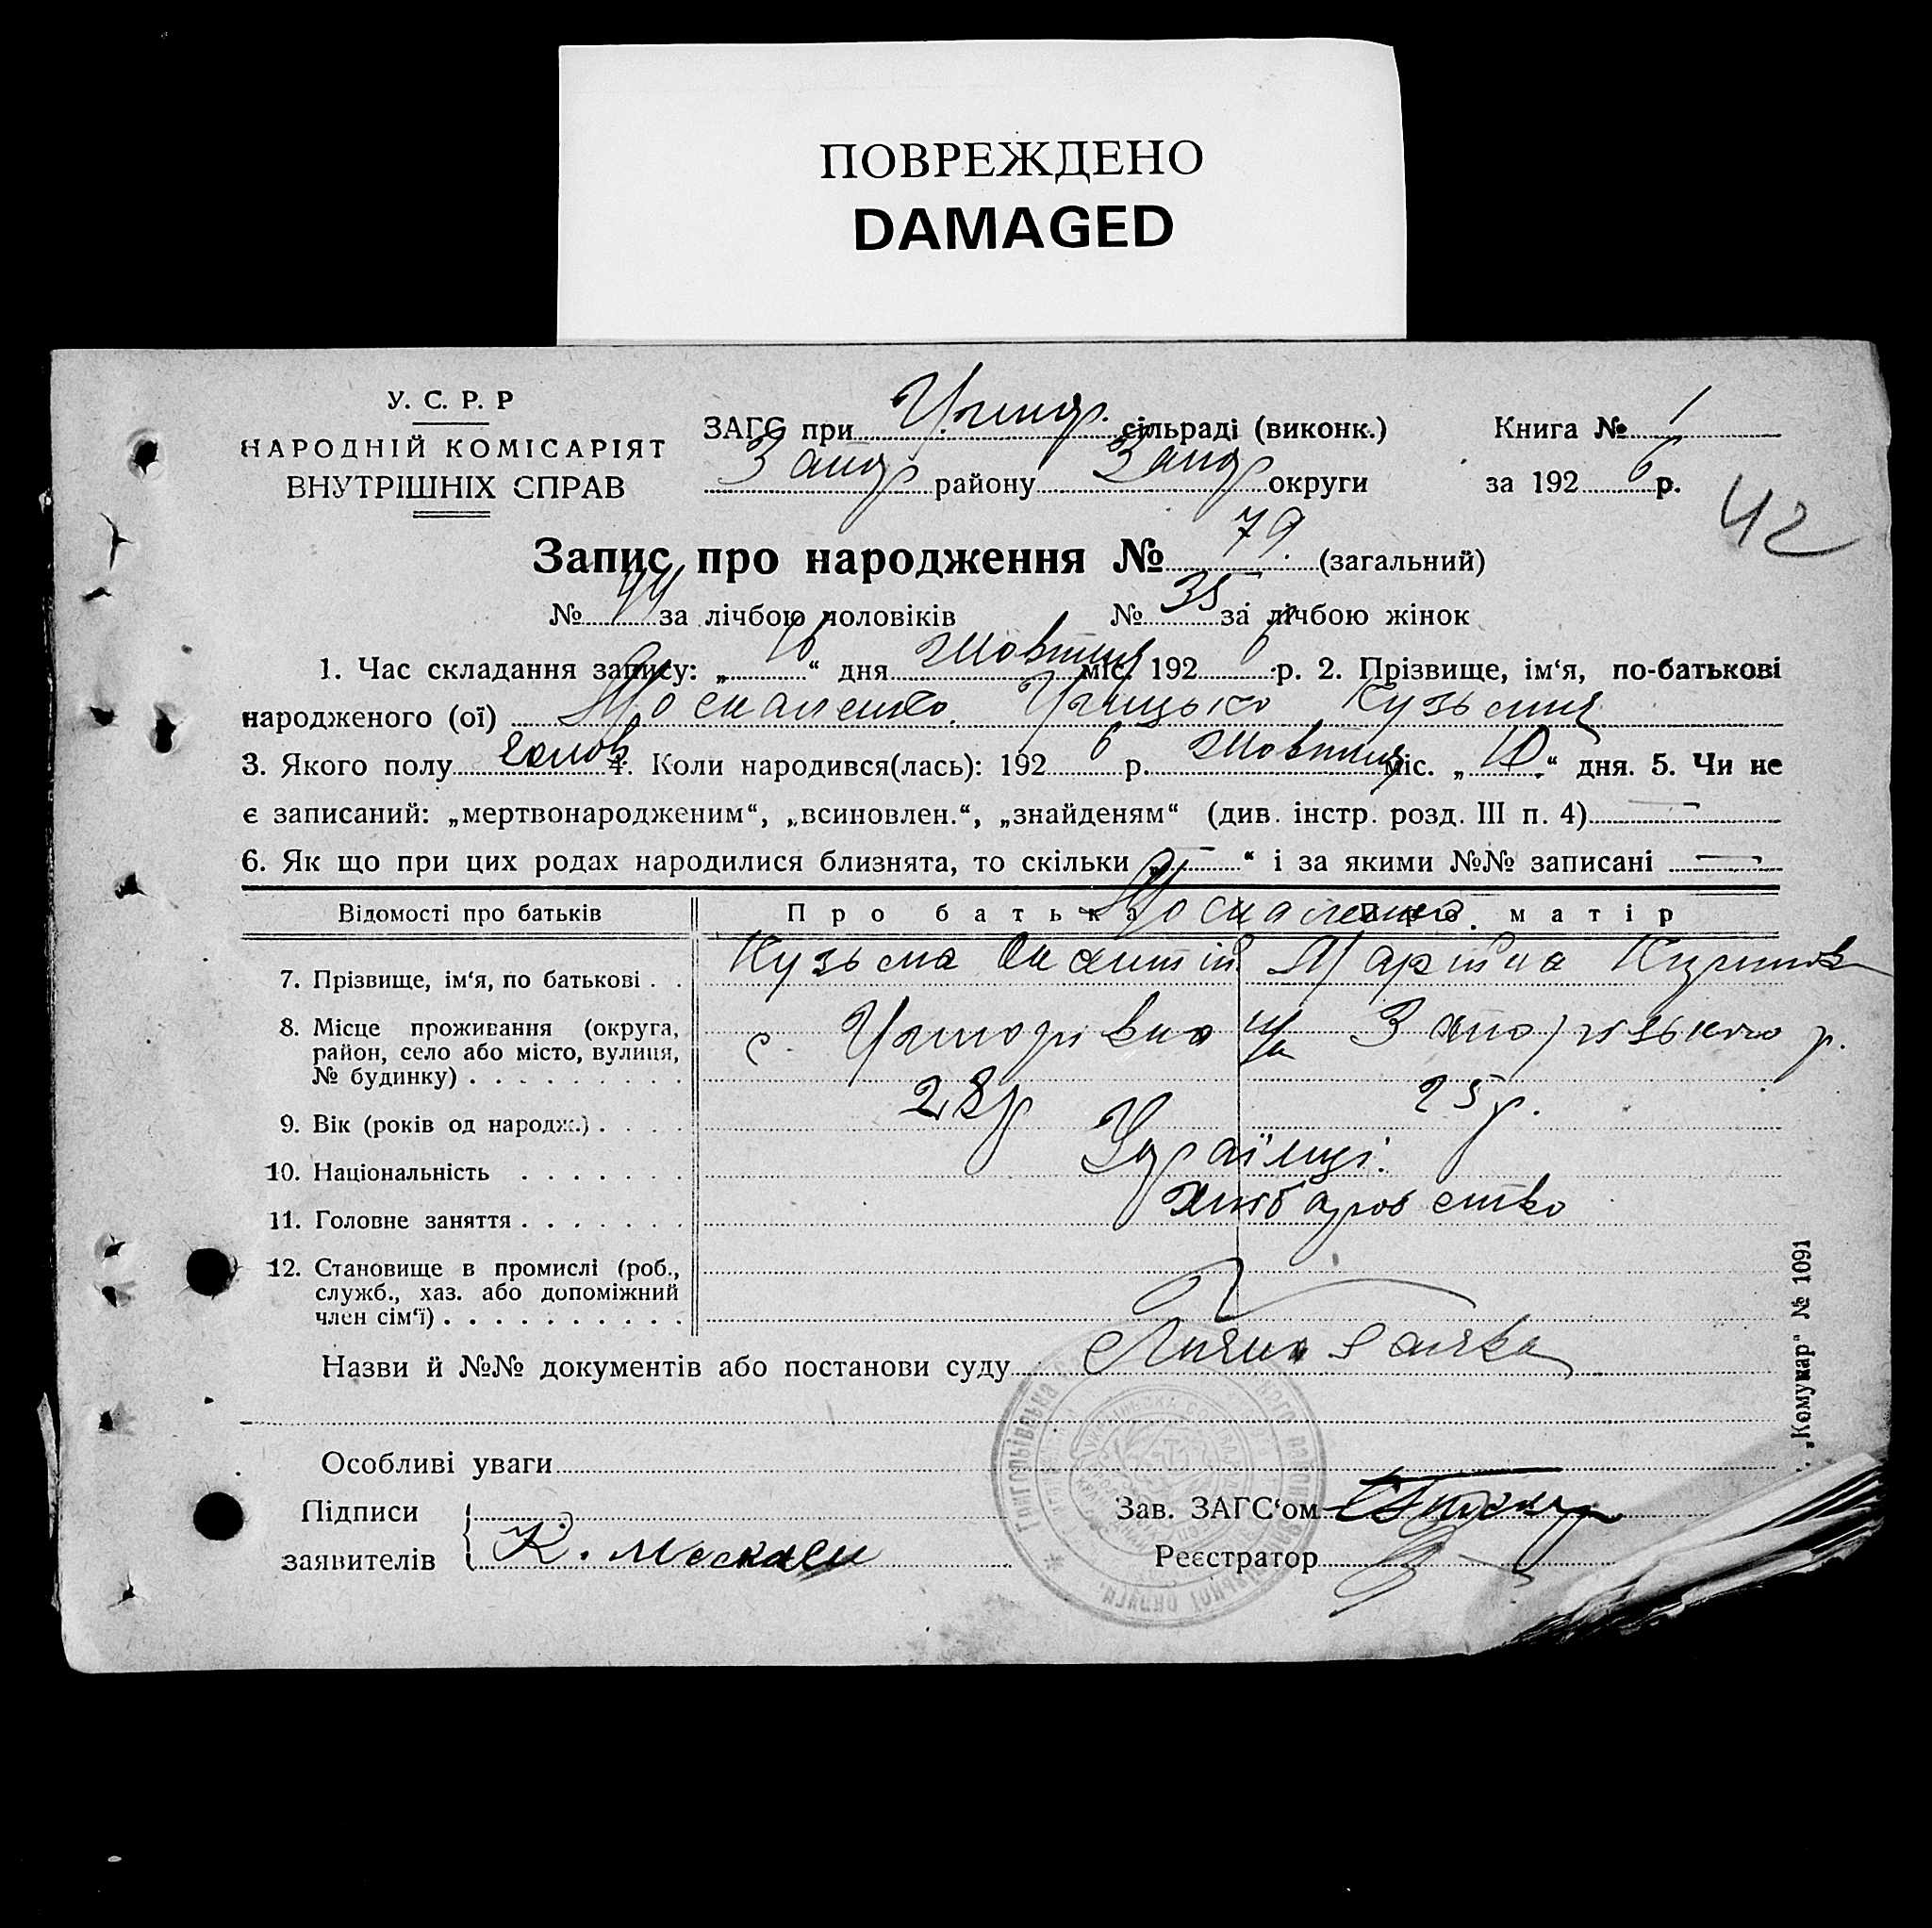 ПОВРЕЖДЕНО
DAMAGED
У. С. Р. Р
НАРОДНІЙ КОМІСАРІЯТ
ВНУТРІШНІХ СПРАВ
ЗАГС при сільраді (виконк.)
Книга № 1
Запор району Запор округи
за 1926 р.
42
Запис про народження № 79. (загальний)
№ 44 за лічбою чоловіків № 35 за лічбою жінок
1. Час складання запису: „16“ дня Жовтня міс. 1926 р. 2. Прізвище, ім‘я, по-батькові
народженого (ої) Москаленко Грицько Кузьмич
3. Якого полу чолов 4. Коли народився(лась): 1926 р. Жовтня міс. „10“ дня. 5. Чи не
є записаний: „мертвонародженим“, „всиновлен.“, „знайденям“ (див. інстр. розд. III п. 4) —
6. Як що при цих родах народилися близнята, то скільки „—“ і за якими №№ записані —
Відомості про батьків Про батька Про матір
Москаленко
7. Прізвище, ім‘я, по батькові . . Кузьма
8. Місце проживання (округа,
район, село або місто, вулиця,
№ будинку) . . . . . . . . . с. Григорівка Запорізького р.
9. Вік (років од народж.) . . . . 28р 25р.
10. Національність . . . . . . . Українці.
11. Головне заняття . . . . . . . хліборобство
12. Становище в промислі (роб.,
служб., хаз. або допоміжний
член сім‘ї) . . . . . . . . . .
Назви й №№ документів або постанови суду Лична заява
Особливі уваги
Підписи
заявителів К. Москален
Зав. ЗАГС‘ом
Реєстратор
„Комунар“ № 1091